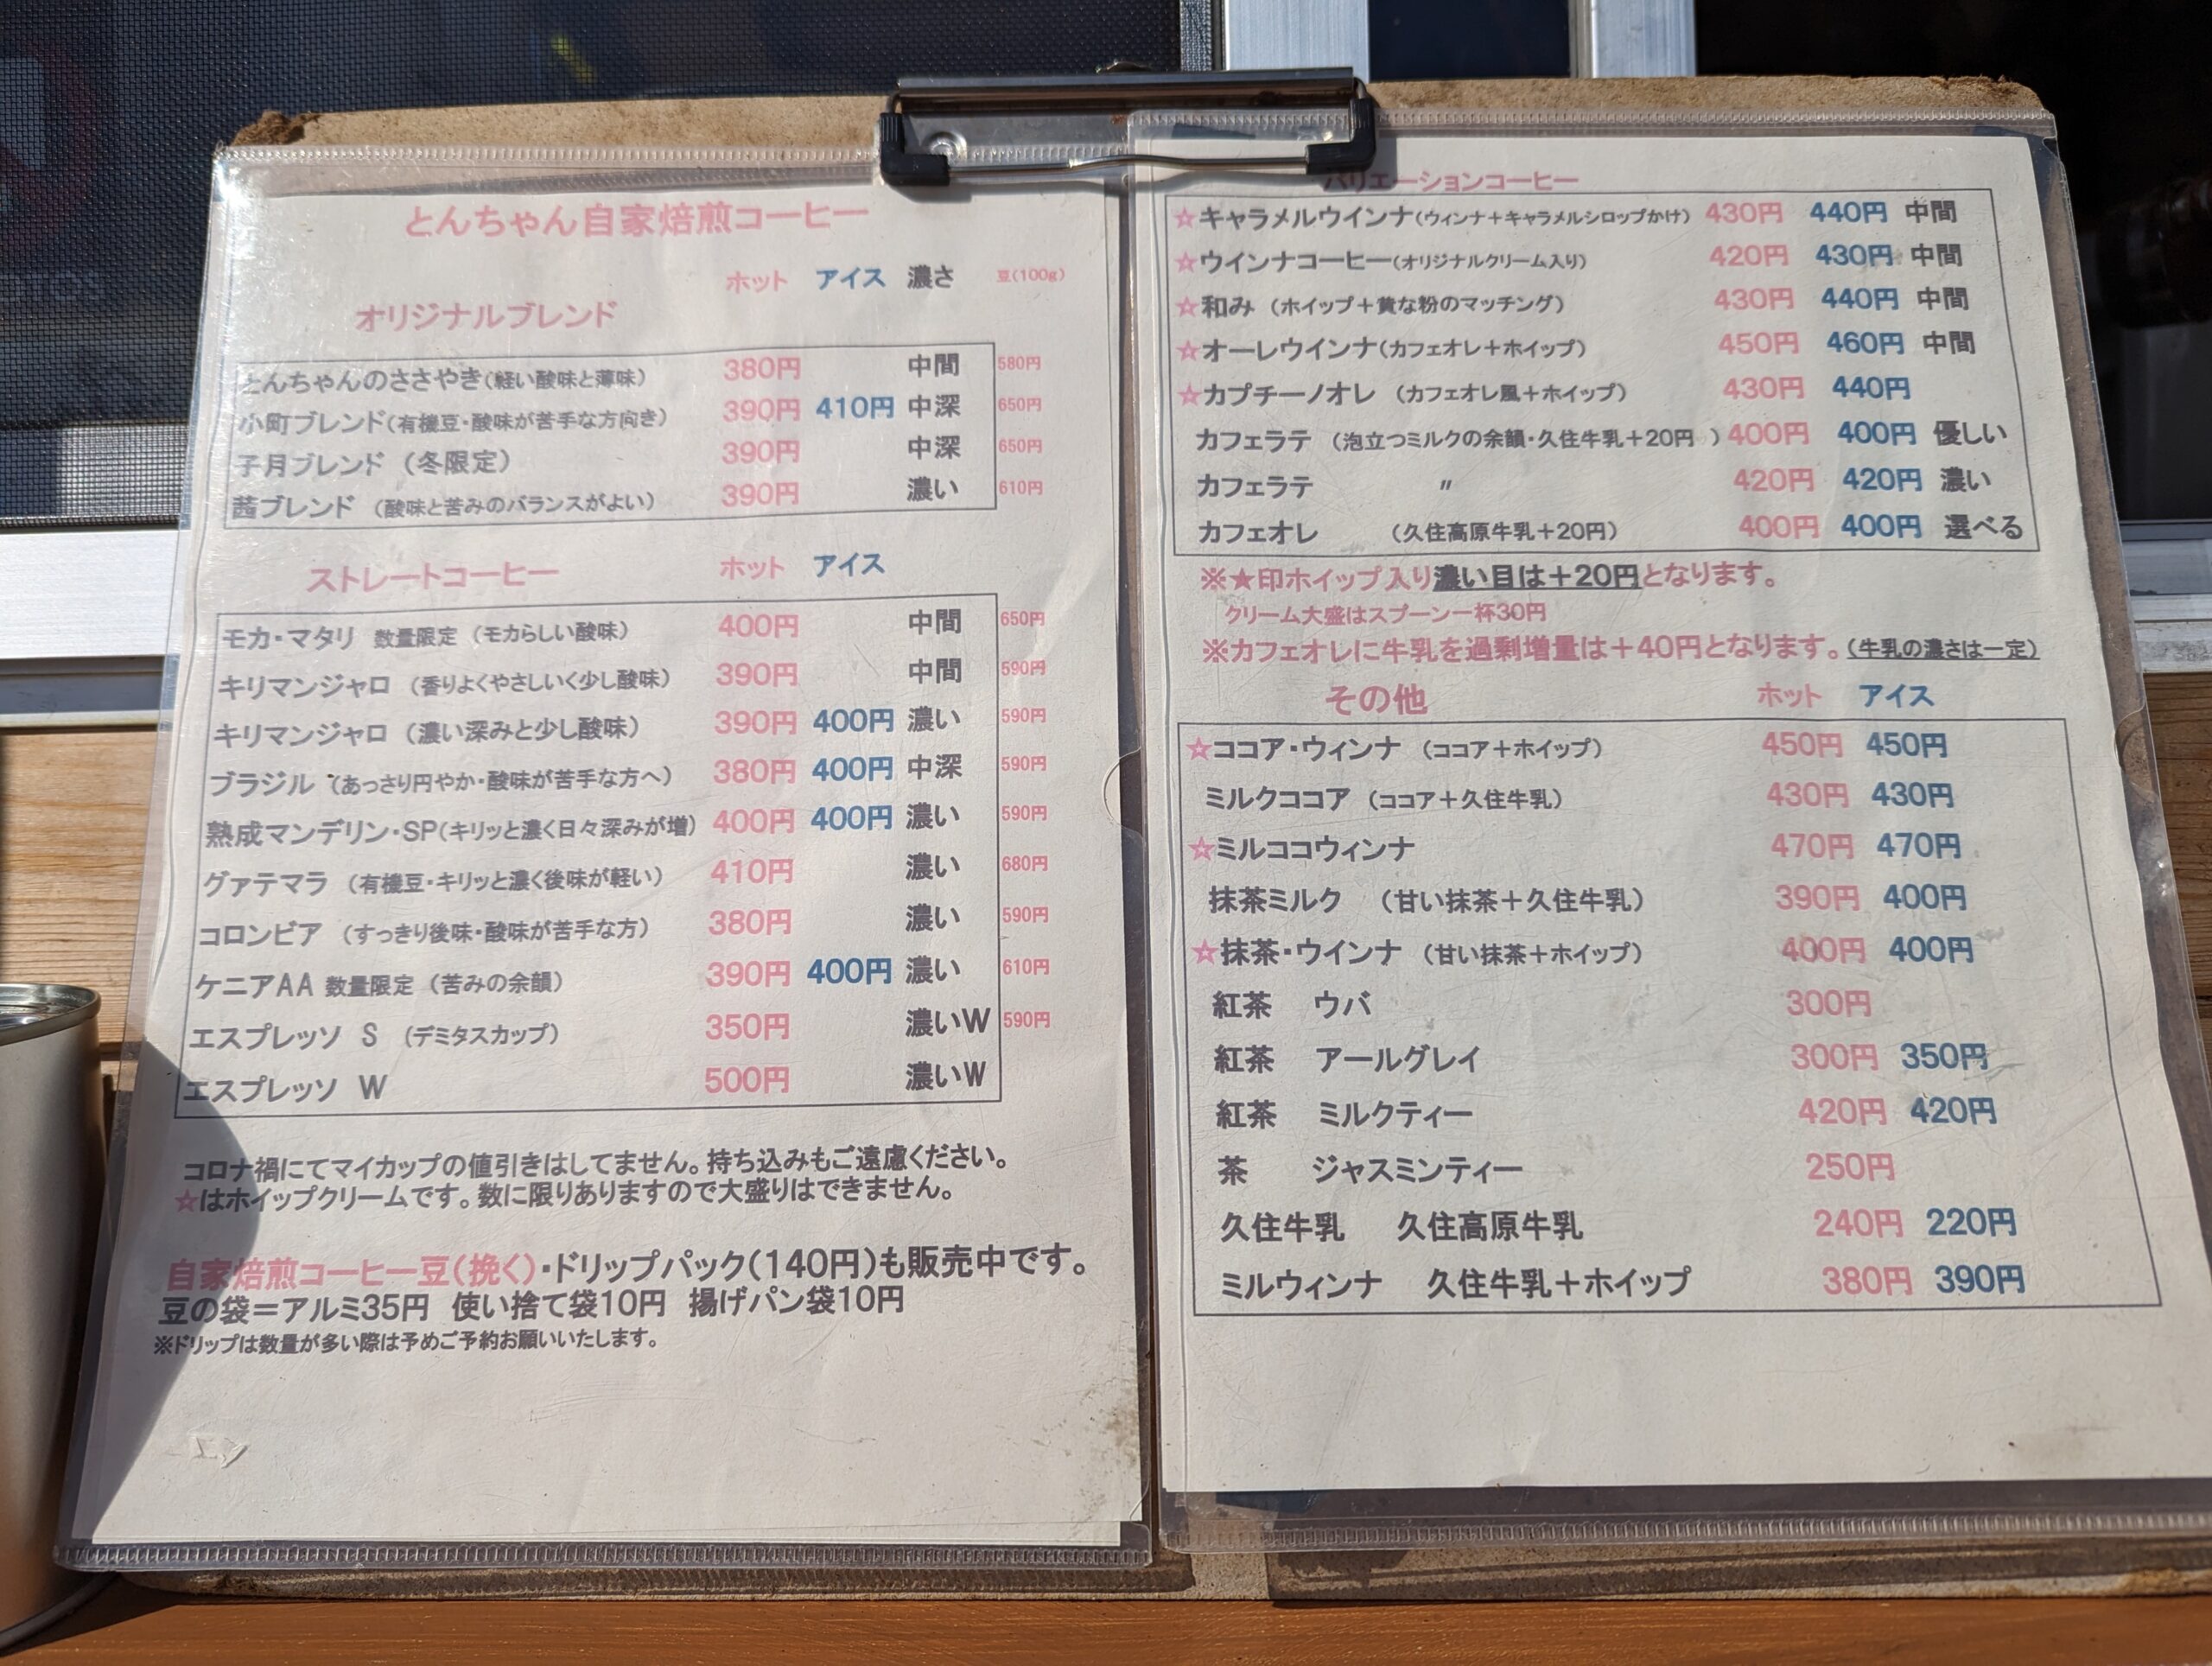 とんちゃん自家焙煎コーヒー
ホット アイス 濃さ 豆(100g)
オリジナルブレンド
とんちゃんのささやき(軽い酸味と薄味) 380円 中間 580円
小町ブレンド(有機豆・酸味が苦手な方向き) 390円 410円 中深 650円
子月ブレンド (冬限定) 390円 中深 650円
茜ブレンド (酸味と苦みのバランスがよい) 390円 濃い 610円
ストレートコーヒー ホット アイス
モカ・マタリ 数量限定 (モカらしい酸味) 400円 中間 650円
キリマンジャロ (香りよくやさしいく少し酸味) 390円 中間 590円
キリマンジャロ (濃い深みと少し酸味) 390円 400円 濃い 590円
ブラジル (あっさり円やか・酸味が苦手な方へ) 380円 400円 中深 590円
熟成マンデリン・SP(キリッと濃く日々深みが増) 400円 400円 濃い 590円
グァテマラ (有機豆・キリッと濃く後味が軽い) 410円 濃い 680円
コロンビア (すっきり後味・酸味が苦手な方) 380円 濃い 590円
ケニアAA 数量限定 (苦みの余韻) 390円 400円 濃い 610円
エスプレッソ S (デミタスカップ) 350円 濃いW 590円
エスプレッソ W 500円 濃いW
コロナ禍にてマイカップの値引きはしてません。持ち込みもご遠慮ください。
☆はホイップクリームです。数に限りありますので大盛りはできません。
自家焙煎コーヒー豆(挽く)・ドリップパック(140円)も販売中です。
豆の袋=アルミ35円 使い捨て袋10円 揚げパン袋10円
※ドリップは数量が多い際は予めご予約お願いいたします。
バリエーションコーヒー
☆キャラメルウインナ(ウィンナ+キャラメルシロップかけ) 430円 440円 中間
☆ウインナコーヒー(オリジナルクリーム入り) 420円 430円 中間
☆和み (ホイップ+黄な粉のマッチング) 430円 440円 中間
☆オーレウインナ(カフェオレ+ホイップ) 450円 460円 中間
☆カプチーノオレ (カフェオレ風+ホイップ) 430円 440円
カフェラテ (泡立つミルクの余韻・久住牛乳+20円 ) 400円 400円 優しい
カフェラテ 〃 420円 420円 濃い
カフェオレ (久住高原牛乳+20円) 400円 400円 選べる
※★印ホイップ入り濃い目は+20円となります。
クリーム大盛はスプーン一杯30円
※カフェオレに牛乳を過剰増量は+40円となります。(牛乳の濃さは一定)
その他 ホット アイス
☆ココア・ウィンナ (ココア+ホイップ) 450円 450円
ミルクココア (ココア+久住牛乳) 430円 430円
☆ミルココウィンナ 470円 470円
抹茶ミルク (甘い抹茶+久住牛乳) 390円 400円
☆抹茶・ウインナ (甘い抹茶+ホイップ) 400円 400円
紅茶 ウバ 300円
紅茶 アールグレイ 300円 350円
紅茶 ミルクティー 420円 420円
茶 ジャスミンティー 250円
久住牛乳 久住高原牛乳 240円 220円
ミルウィンナ 久住牛乳+ホイップ 380円 390円